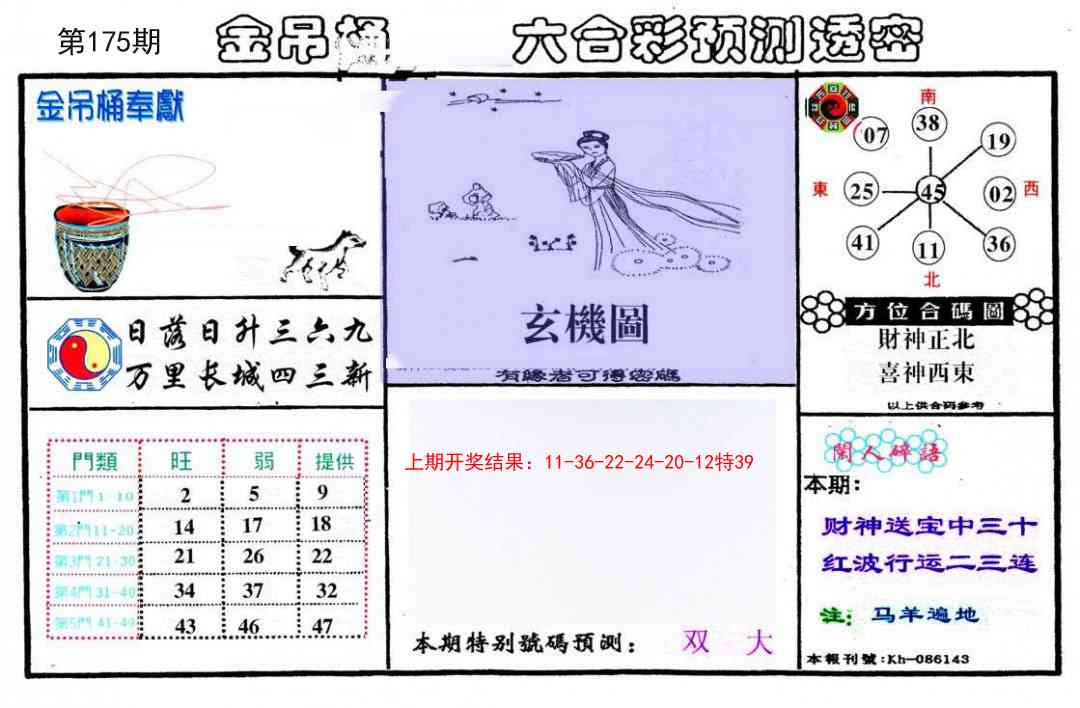 第175期
金吊桶 六合彩预测透密
金吊桶奉獻
日落日升三六九
万里长城四三新
門類 旺 弱 提供
第1門 1-10 2 5 9
第2門 11-20 14 17 18
第3門 21-30 21 26 22
第4門 31-40 34 37 32
第5門 41-49 43 46 47
玄機圖
有緣者可得密碼
上期开奖结果：11-36-22-24-20-12特39
本期特别號碼预测： 双 大
南
07 38 19
東 25 45 02 西
41 11 36
北
方位合碼圖
財神正北
喜神西東
以上供合码参考
閑人碎語
本期：
财神送宝中三十
红波行运二三连
注：马羊遍地
本報刊號:Kh-086143